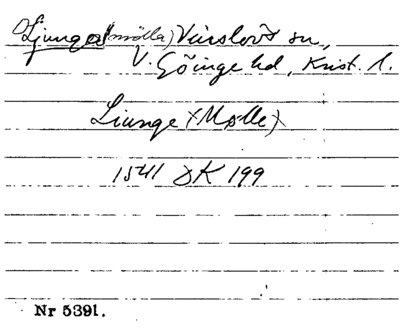 Ljunga(mölla) Vinslövs sn,
V. Göinge hd, Krist. l.
Liunge (Mølle)
1541 DK 199
Nr 5391.